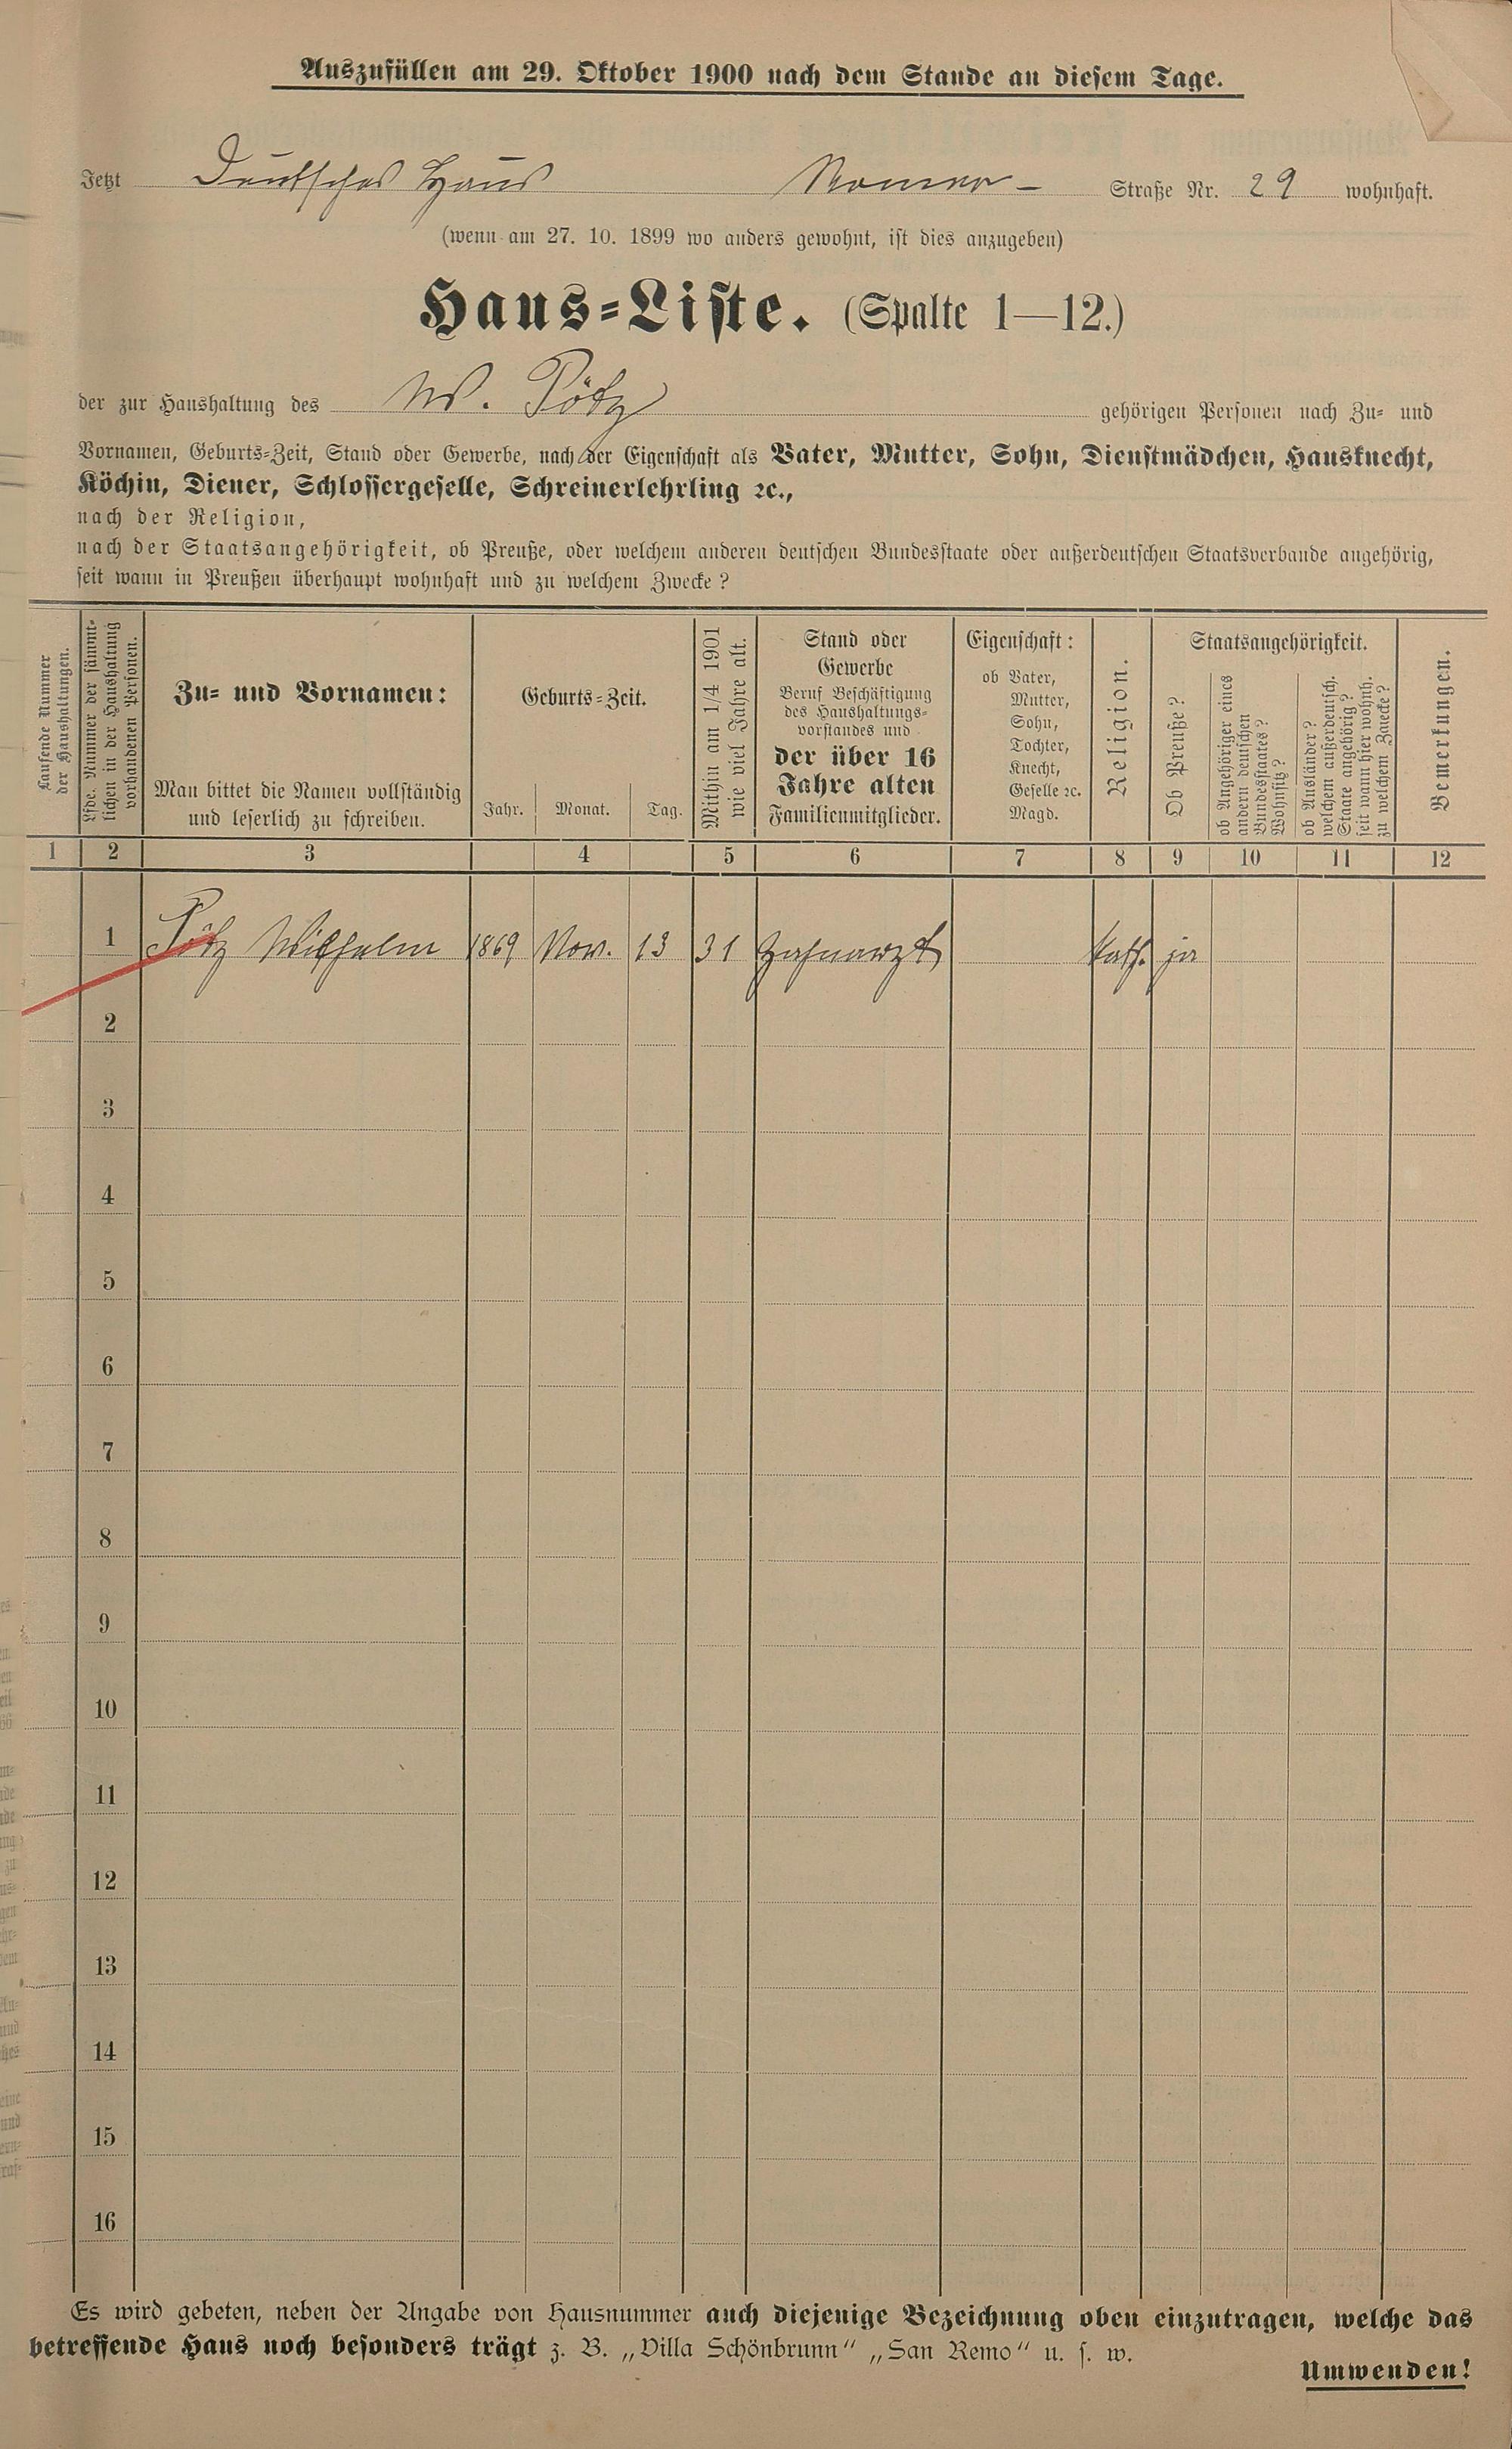 Auszufüllen am 29. Oktober 1900 nach dem Stande an diesem Tage.
Jetzt Deutsches Haus Römer- Straße Nr. 29 wohnhaft.
(wenn am 27. 10. 1899 wo anders gewohnt, ist dies anzugeben)
Haus-Liste. (Spalte 1—12.)
der zur Haushaltung des W. Pötz gehörigen Personen nach Zu- und
Vornamen, Geburts-Zeit, Stand oder Gewerbe, nach der Eigenschaft als Vater, Mutter, Sohn, Dienstmädchen, Hausknecht,
Köchin, Diener, Schlossergeselle, Schreinerlehrling ꝛc.,
nach der Religion,
nach der Staatsangehörigkeit, ob Preuße, oder welchem anderen deutschen Bundesstaate oder außerdeutschen Staatsverbande angehörig,
seit wann in Preußen überhaupt wohnhaft und zu welchem Zwecke?
Laufende Nummer
der Haushaltungen.
Lfde. Nummer der sämmt-
lichen in der Haushaltung
vorhandenen Personen.
Zu- und Vornamen:
Man bittet die Namen vollständig
und leserlich zu schreiben.
Geburts-Zeit.
Jahr. Monat. Tag.
Mithin am 1/4 1901
wie viel Jahre alt.
Stand oder
Gewerbe
Beruf Beschäftigung
des Haushaltungs-
vorstandes und
der über 16
Jahre alten
Familienmitglieder.
Eigenschaft:
ob Vater,
Mutter,
Sohn,
Tochter,
Knecht,
Geselle ꝛc.
Magd.
Religion.
Staatsangehörigkeit.
Ob Preuße?
ob Angehöriger eines
andern deutschen
Bundesstaates?
Wohnsitz?
ob Ausländer?
welchem außerdeutsch.
Staate angehörig?
seit wann hier wohnh.
zu welchem Zwecke?
Bemerkungen.
1 2 3 4 5 6 7 8 9 10 11 12
1 Pötz Wilhelm 1869 Nov. 13 31 Zahnarzt kath. ja
2
3
4
5
6
7
8
9
10
11
12
13
14
15
16
Es wird gebeten, neben der Angabe von Hausnummer auch diejenige Bezeichnung oben einzutragen, welche das
betreffende Haus noch besonders trägt z. B. „Villa Schönbrunn“ „San Remo“ u. s. w.
Umwenden!